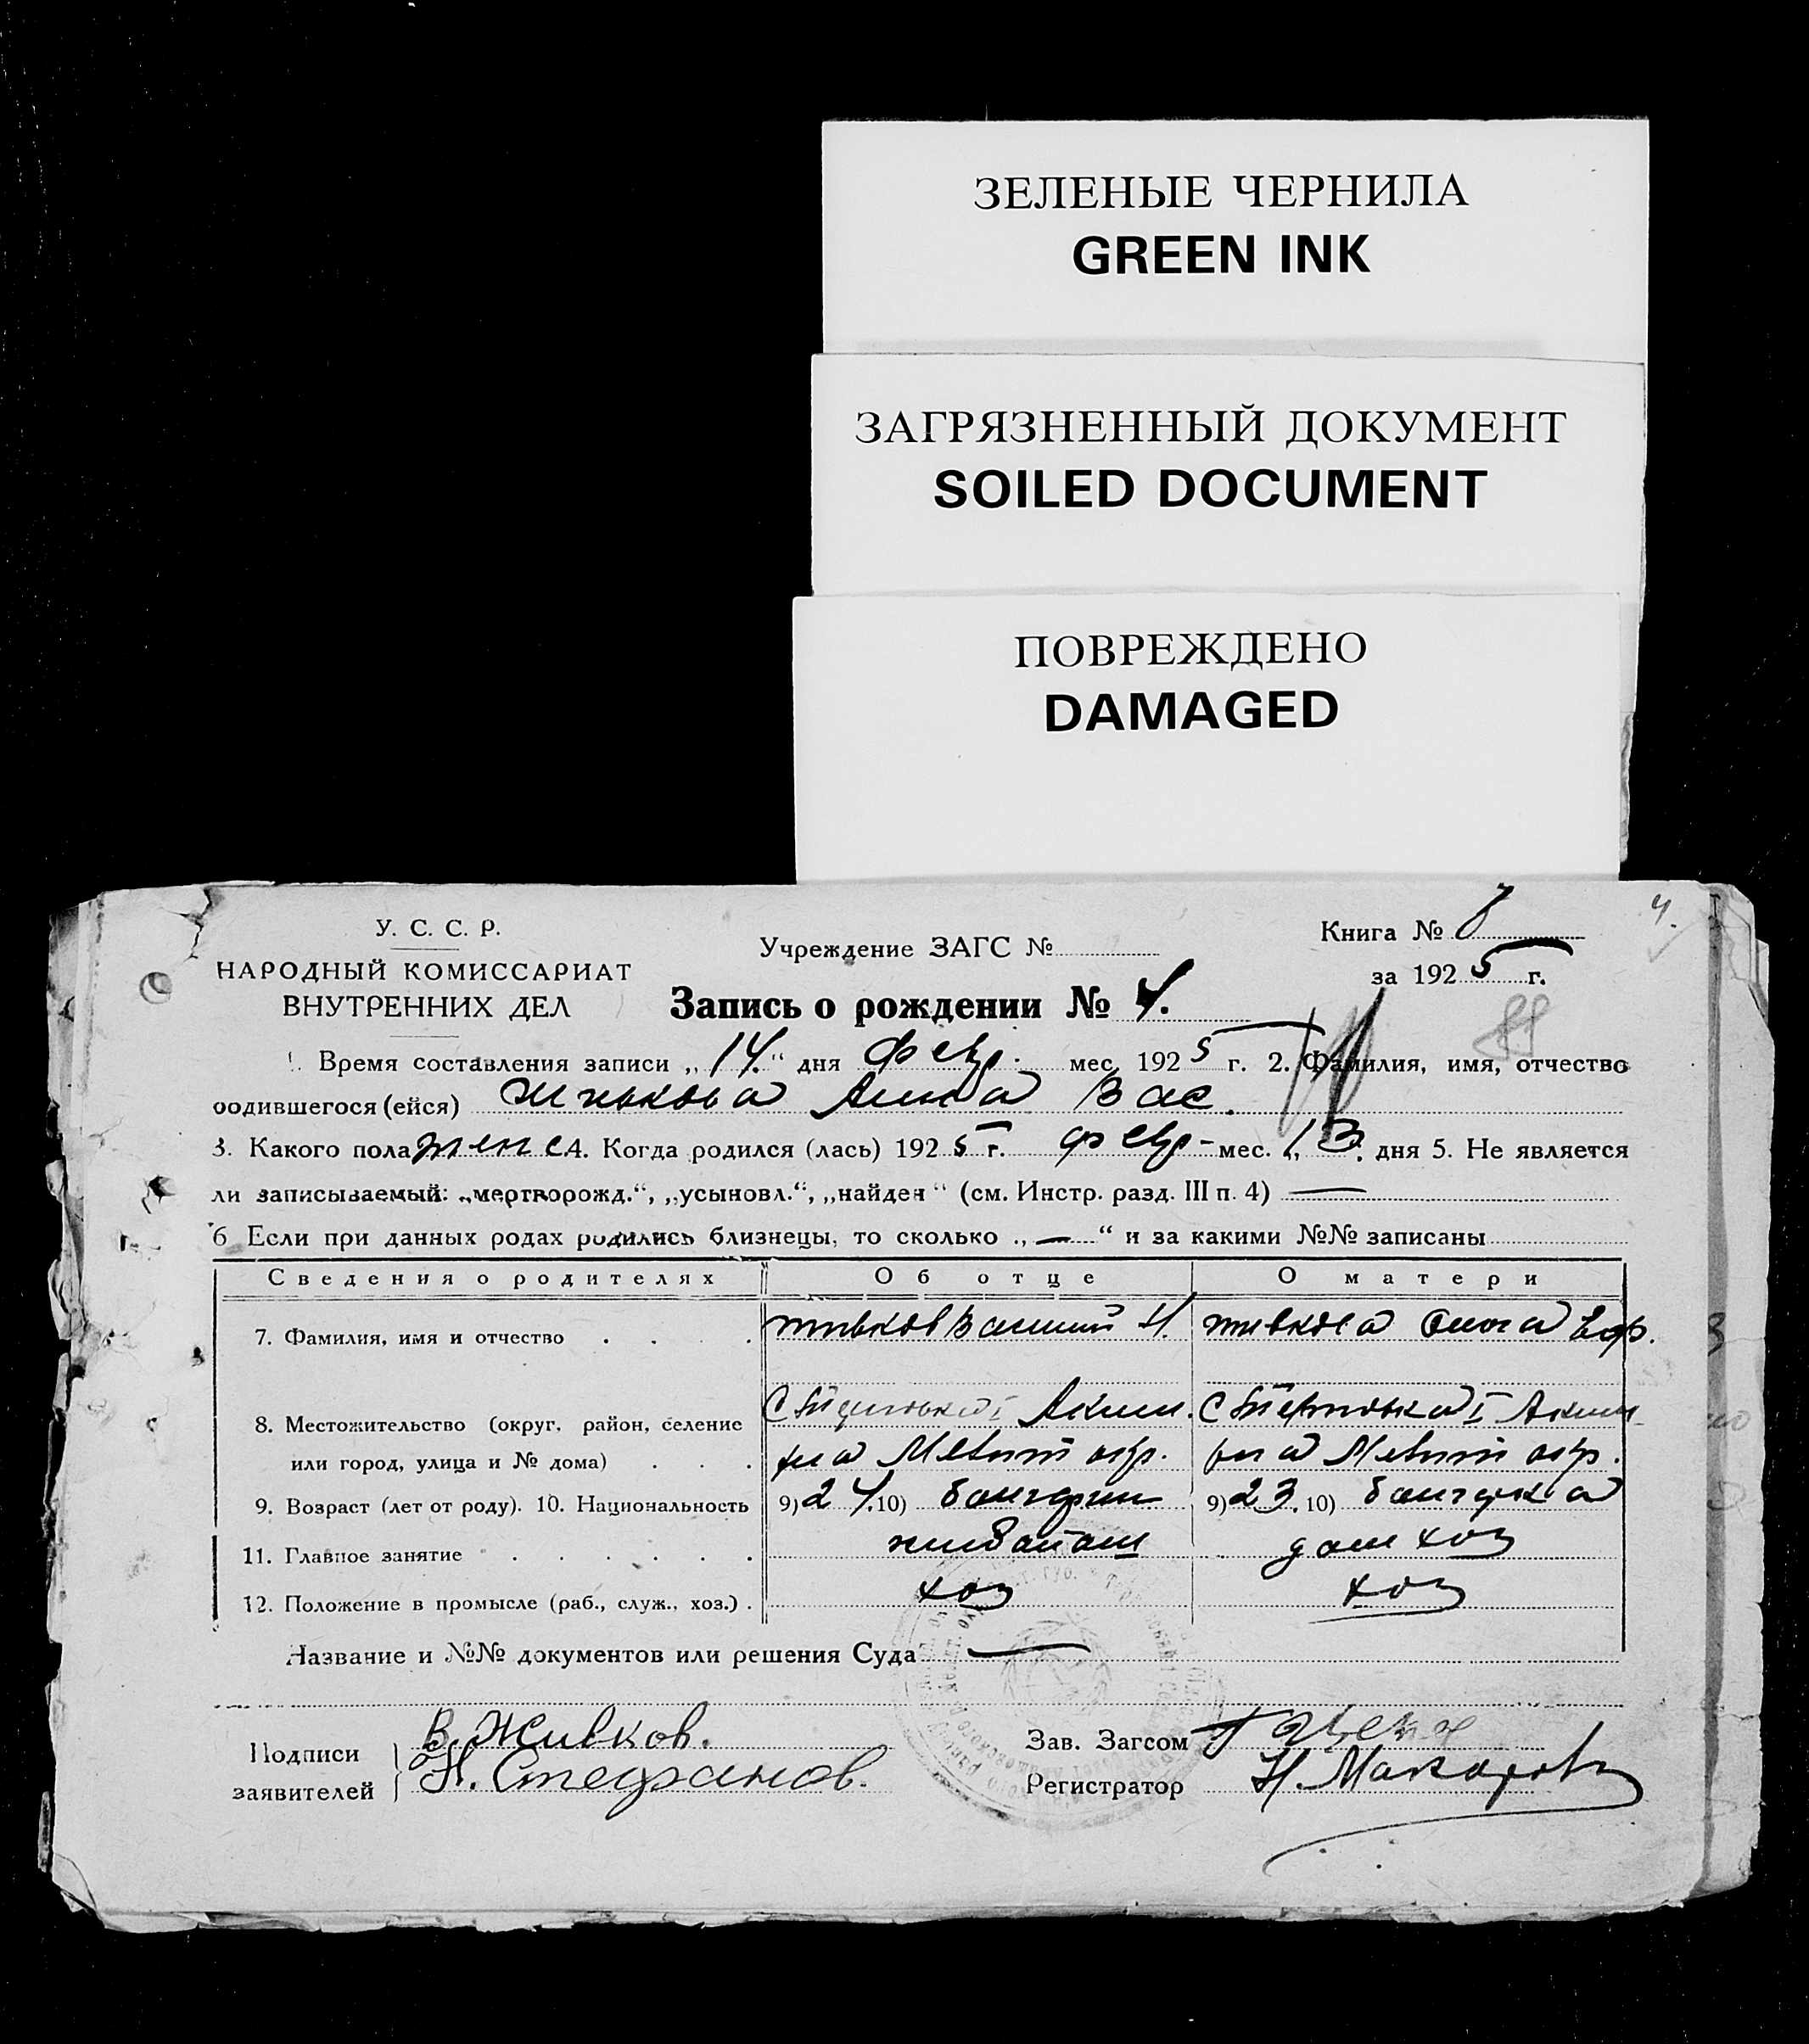 ЗЕЛЕНЫЕ ЧЕРНИЛА
GREEN INK
ЗАГРЯЗНЕННЫЙ ДОКУМЕНТ
SOILED DOCUMENT
ПОВРЕЖДЕНО
DAMAGED
4.
У. С. С. Р.
НАРОДНЫЙ КОМИССАРИАТ
ВНУТРЕННИХ ДЕЛ
Учреждение ЗАГС №
Книга №
за 1925 г.
Запись о рождении № 4.
1. Время составления записи „14.“ дня Февр. мес. 1925 г. 2. Фамилия, имя, отчество
родившегося (ейся) Живкова Анна Вас.
3. Какого пола женс 4. Когда родился (лась) 1925 г. февр- мес. 13. дня 5. Не является
ли записываемый: „мертворожд.“, „усыновл.“, „найден“ (см. Инстр. разд. III п. 4) —
6 Если при данных родах родились близнецы, то сколько „—“ и за какими №№ записаны
Сведения о родителях Об отце О матери
7. Фамилия, имя и отчество Живков Василий Н. Живкова Анна
8. Местожительство (округ, район, селение
или город, улица и № дома) . . . Мелит окр. Мелит окр.
9. Возраст (лет от роду). 10. Национальность 9) 24. 10) болгарин 9) 23. 10) болгарка
11. Главное занятие хлебопаш дом хоз
12. Положение в промысле (раб., служ., хоз.) . хоз хоз
Название и №№ документов или решения Суда —
Подписи
заявителей
В. Живков.
Н. Стефанов.
Зав. Загсом
Регистратор Н. Макаров